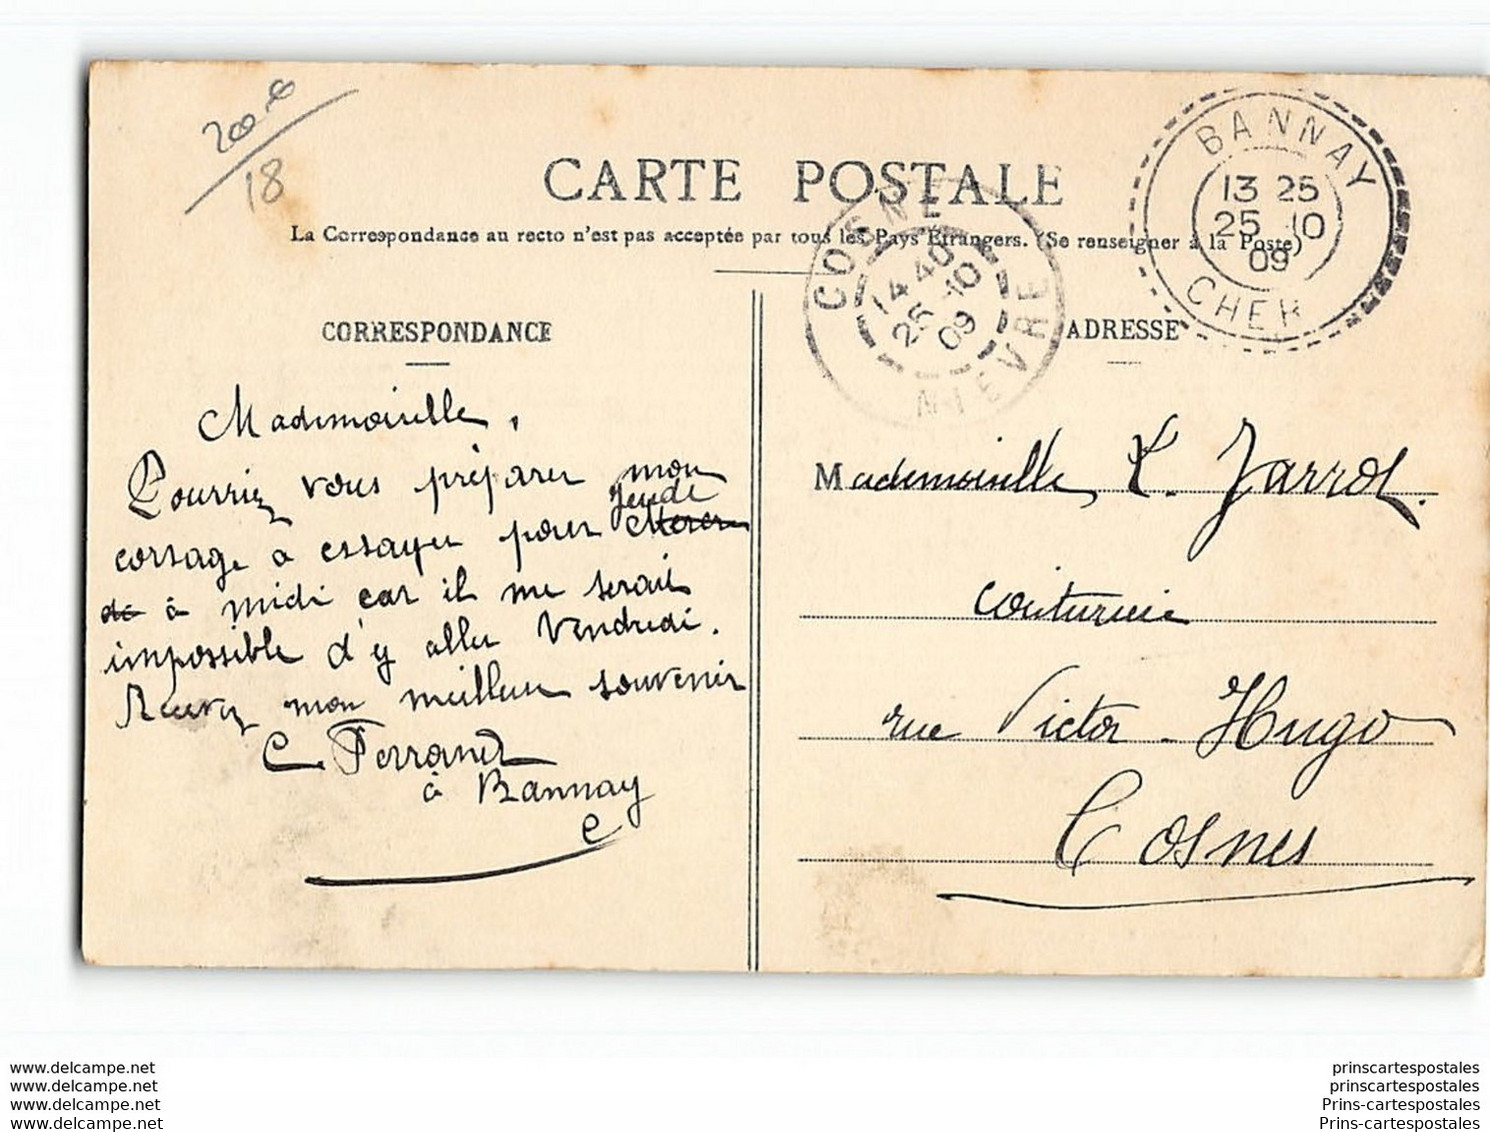 200
18
CARTE POSTALE
La Correspondance au recto n'est pas acceptée par tous les Pays Étrangers. (Se renseigner à la Poste)
BANNAY
13 25
25 10
09
CHER
COSNE
14 40
25 10
09
NIEVRE
CORRESPONDANCE
Mademoiselle,
Pourriez vous préparer mon
corsage a essayer pour jeudi
à midi car il me serait
impossible d'y aller Vendredi.
Recevez mon meilleur souvenir
C. Ferrand
à Bannay
ADRESSE
Mademoiselle L. Jarrot.
couturière
rue Victor-Hugo
Cosnes
www.delcampe.net
www.delcampe.net
www.delcampe.net
www.delcampe.net
prinscartespostales
prinscartespostales
Prins-cartespostales
Prins-cartespostales